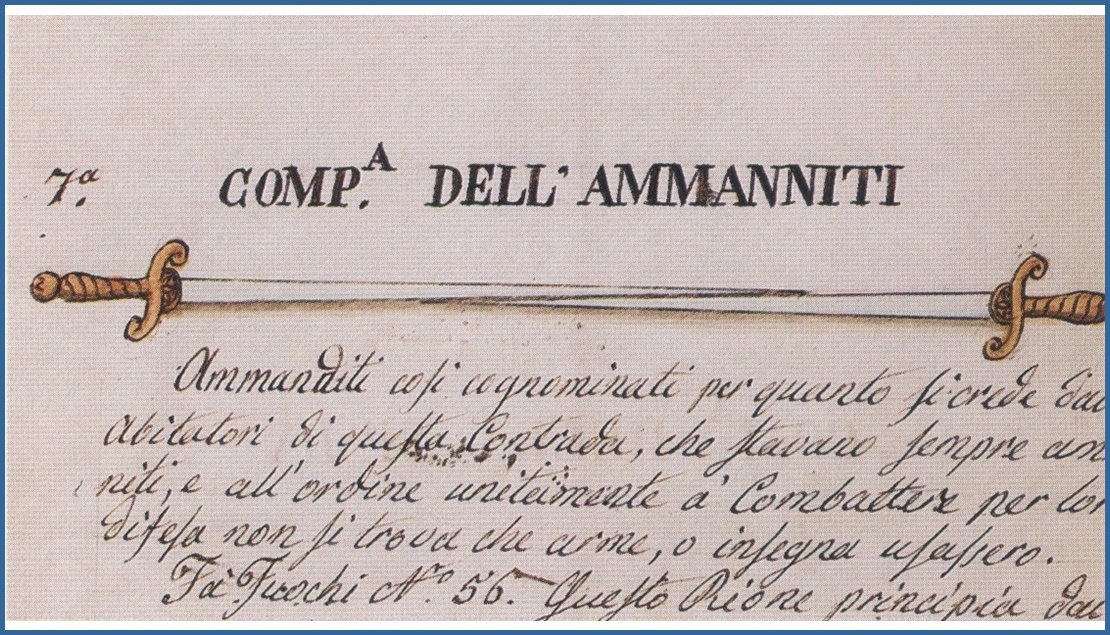 7.a COMP.A DELL' AMMANNITI
Ammanniti cosi cognominati per quanto si crede dai
Abitatori di questa Contrada, che stavano sempre am
niti, e all'ordine uniteimente a' Combattere per lor
difesa non si trova che arme, o insegna usassero.
Fà Fuochi N.o 56. Questo Rione principia dai